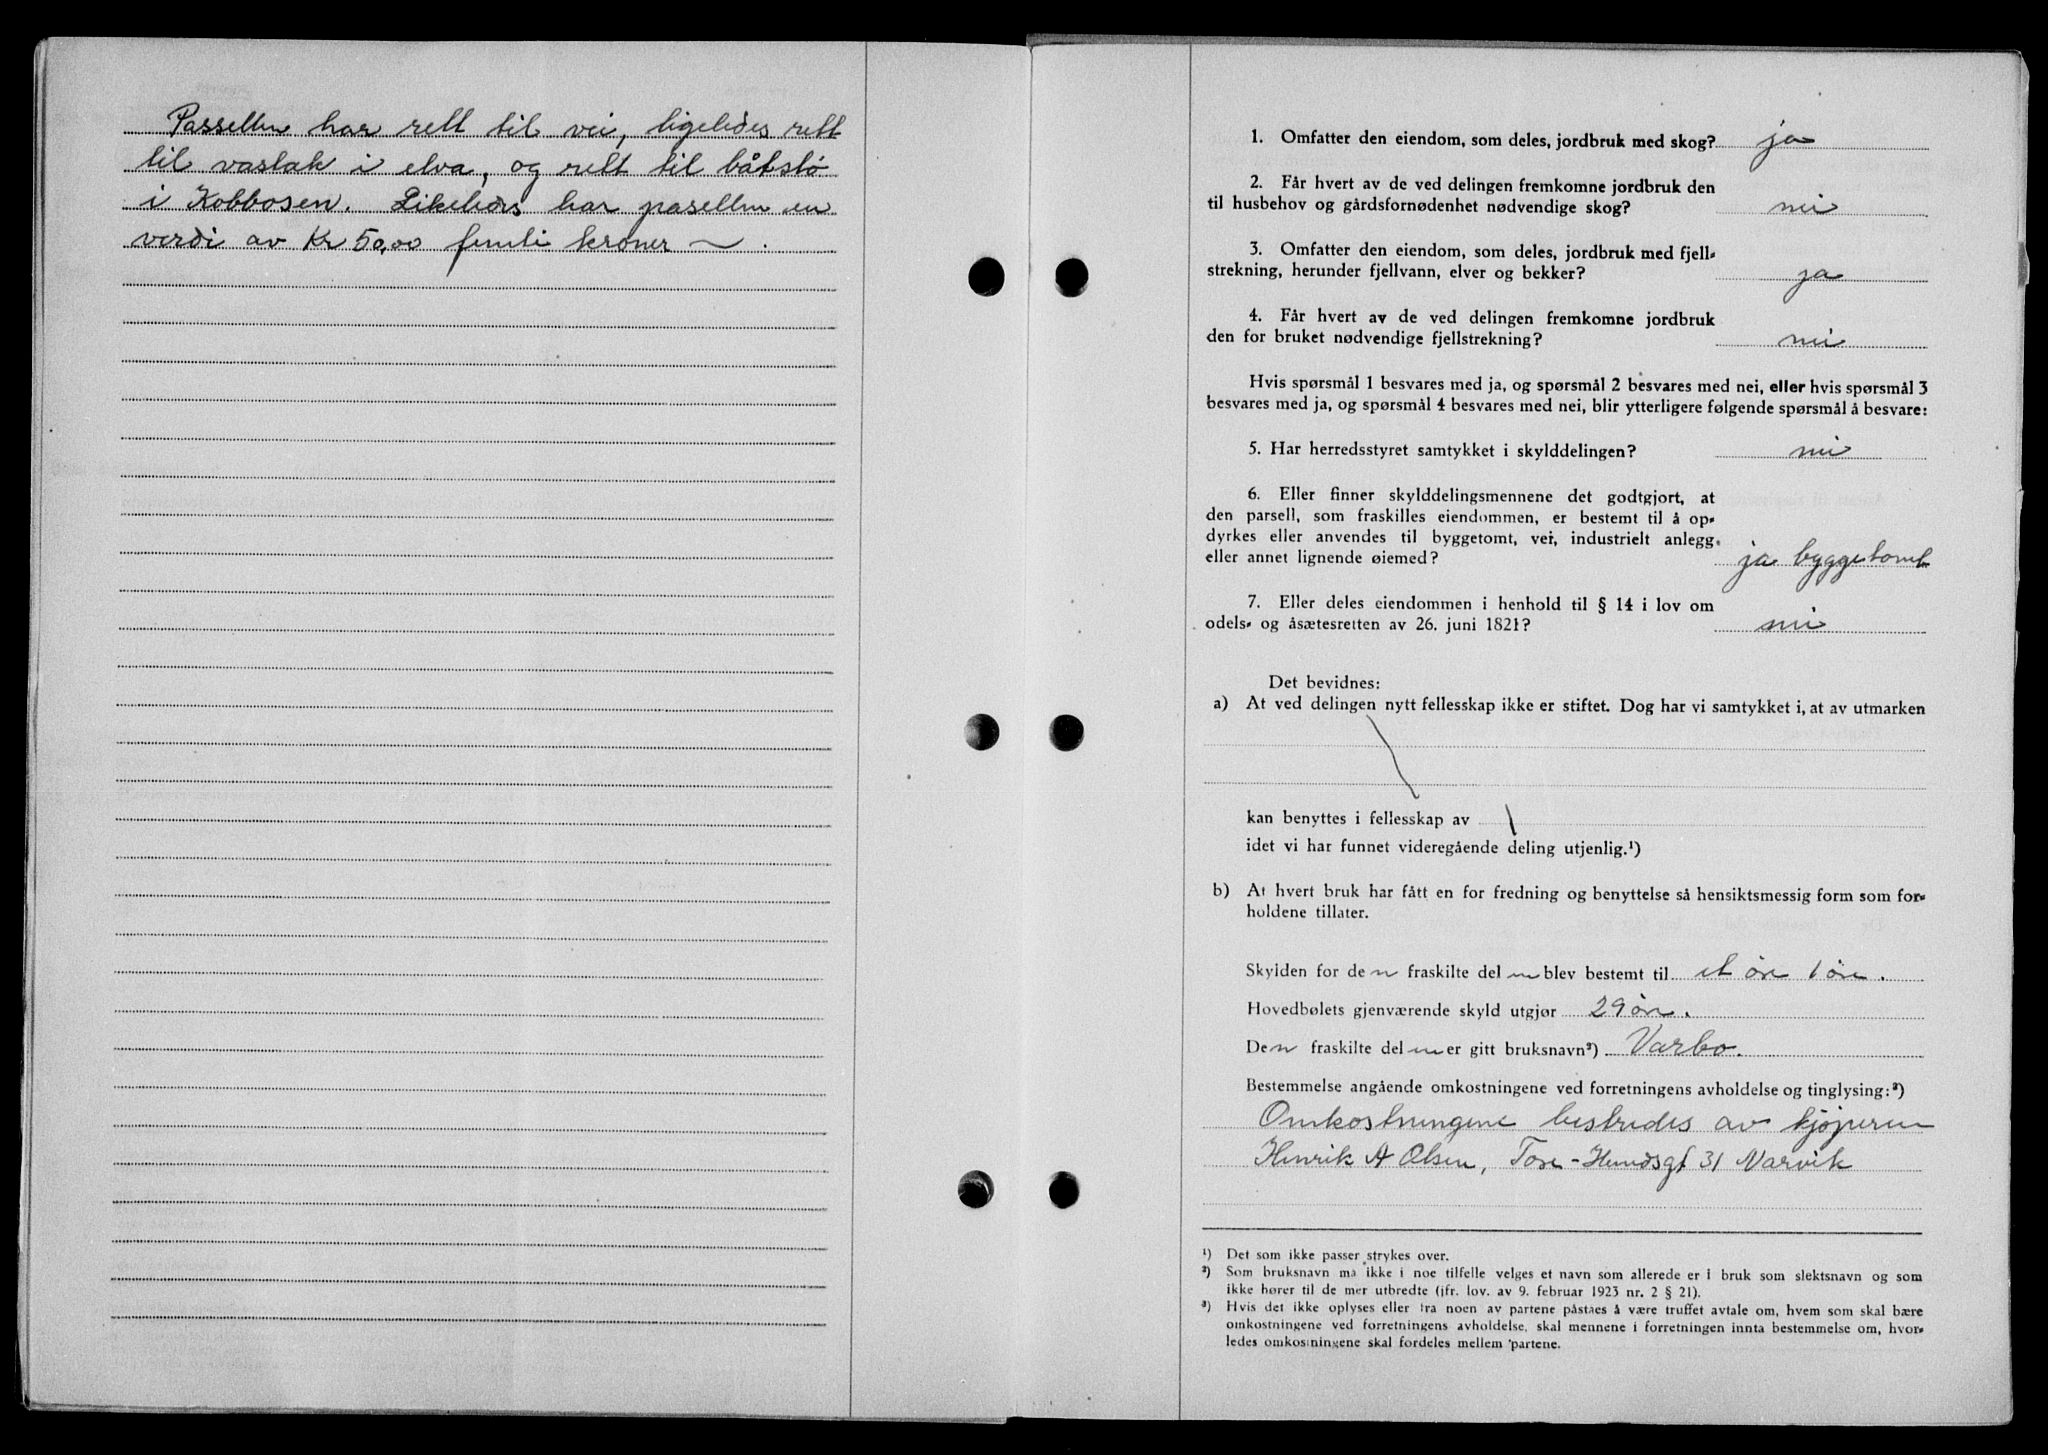 Passellen har rett til vei, ligeledes rett
til vastak i elva, og rett til båtstø
i Kobbosen. Likeledes har pasellen en
verdi av Kr 50,00 femti kroner ~ .
1. Omfatter den eiendom, som deles, jordbruk med skog? ja
2. Får hvert av de ved delingen fremkomne jordbruk den
til husbehov og gårdsfornødenhet nødvendige skog? nei
3. Omfatter den eiendom, som deles, jordbruk med fjell-
strekning, herunder fjellvann, elver og bekker? ja
4. Får hvert av de ved delingen fremkomne jordbruk
den for bruket nødvendige fjellstrekning? nei
Hvis spørsmål 1 besvares med ja, og spørsmål 2 besvares med nei, eller hvis spørsmål 3
besvares med ja, og spørsmål 4 besvares med nei, blir ytterligere følgende spørsmål å besvare:
5. Har herredsstyret samtykket i skylddelingen? nei
6. Eller finner skylddelingsmennene det godtgjort, at
den parsell, som fraskilles eiendommen, er bestemt til å op-
dyrkes eller anvendes til byggetomt, vei, industrielt anlegg
eller annet lignende øiemed? ja byggetomt
7. Eller deles eiendommen i henhold til § 14 i lov om
odels- og åsætesretten av 26. juni 1821? nei
Det bevidnes:
a) At ved delingen nytt fellesskap ikke er stiftet. Dog har vi samtykket i, at av utmarken
kan benyttes i fellesskap av
idet vi har funnet videregående deling utjenlig.¹)
b) At hvert bruk har fått en for fredning og benyttelse så hensiktsmessig form som for-
holdene tillater.
Skylden for den fraskilte del blev bestemt til et øre 1 øre.
Hovedbølets gjenværende skyld utgjør 29 øre.
Den fraskilte del er gitt bruksnavn²) Varbo.
Bestemmelse angående omkostningene ved forretningens avholdelse og tinglysing:³)
Omkostningene bestrides av kjøperen
Henrik A Olsen, Tore-Hundsgt 31 Narvik
¹) Det som ikke passer strykes over.
²) Som bruksnavn må ikke i noe tilfelle velges et navn som allerede er i bruk som slektsnavn og som
ikke hører til de mer utbredte (jfr. lov. av 9. februar 1923 nr. 2 § 21).
³) Hvis det ikke oplyses eller fra noen av partene påståes å være truffet avtale om, hvem som skal bære
omkostningene ved forretningens avholdelse, skal mennene i forretningen innta bestemmelse om, hvor-
ledes omkostningene skal fordeles mellem partene.